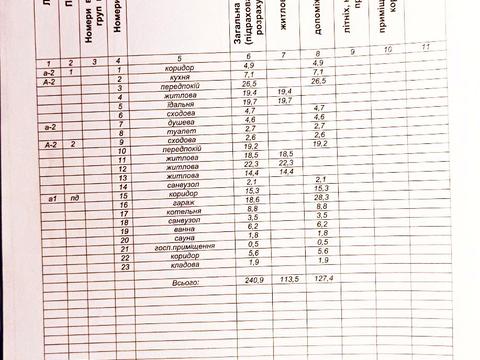 Номери
груп
Номери
Загальна
(підрахова
розраху
житлов
допоміж
літніх,
1 2 3 4 5 6 7 8 9 10 11
а-2 1 1 коридор 4,9 4,9
А-2 2 кухня 7,1 7,1
3 передпокій 26,5 26,5
4 житлова 19,4 19,4
5 їдальня 19,7 19,7
6 сходова 4,7 4,7
7 душева 4,6 4,6
а-2 8 туалет 2,7 2,7
9 сходова 2,6 2,6
А-2 2 10 передпокій 19,2 19,2
11 житлова 18,5 18,5
12 житлова 22,3 22,3
13 житлова 14,4 14,4
14 санвузол 2,1 2,1
15 коридор 15,3 15,3
а1 пд 16 гараж 18,6 28,3
17 котельня 8,8 8,8
18 санвузол 3,5 3,5
19 ванна 6,2 6,2
20 сауна 1,8 1,8
21 госп.приміщення 0,5 0,5
22 коридор 5,6 5,6
23 кладова 1,9 1,9
Всього: 240,9 113,5 127,4